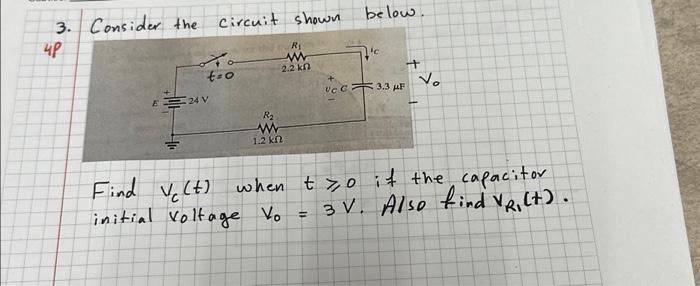 3. Consider the circuit shown below.
4P
R1
2.2 kΩ
ic
t=0
+
+
Vo
E
+
24 V
υC C
3.3 μF
−
−
−
R2
1.2 kΩ
Find Vc(t) when t ⩾ 0 if the capacitor
initial voltage Vo = 3 V. Also find VR1(t).